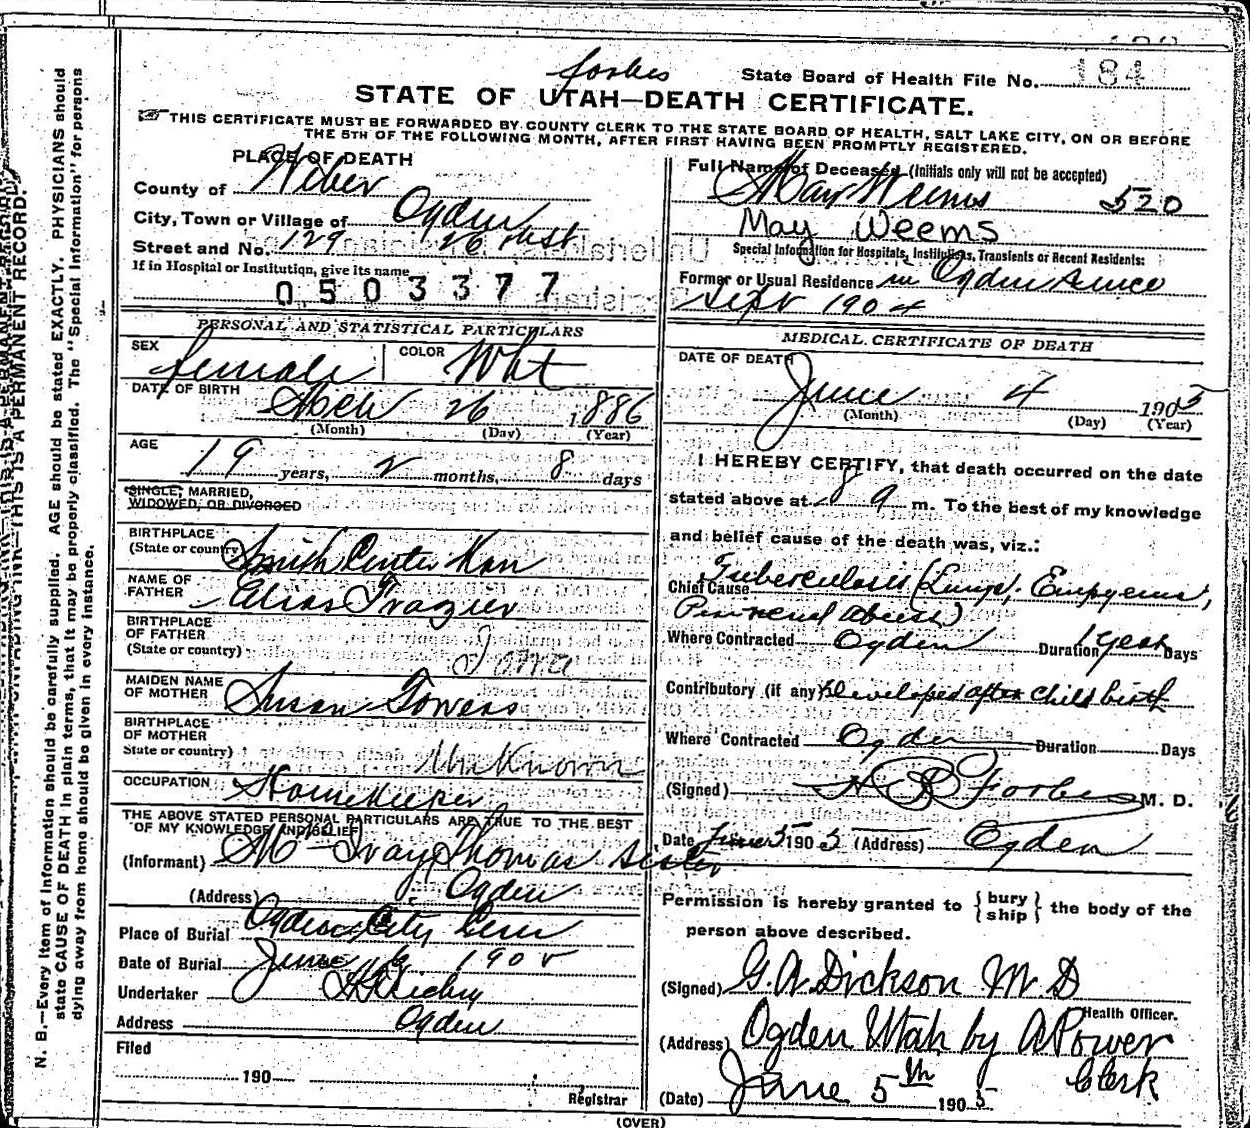 184
forbes
State Board of Health File No.
STATE OF UTAH—DEATH CERTIFICATE.
THIS CERTIFICATE MUST BE FORWARDED BY COUNTY CLERK TO THE STATE BOARD OF HEALTH, SALT LAKE CITY, ON OR BEFORE
THE 5TH OF THE FOLLOWING MONTH, AFTER FIRST HAVING BEEN PROMPTLY REGISTERED.
PLACE OF DEATH
County of Weber
City, Town or Village of Ogden
Street and No. 129 26 
If in Hospital or Institution, give its name
0503377
PERSONAL AND STATISTICAL PARTICULARS
SEX female COLOR Wht
DATE OF BIRTH Mch 26 1886
(Month) (Day) (Year)
AGE 19 years, 2 months, 8 days
SINGLE, MARRIED,
WIDOWED, OR DIVORCED
BIRTHPLACE
(State or country) Smith Center Kan
NAME OF
FATHER Elias Frazier
BIRTHPLACE
OF FATHER
(State or country) Iowa
MAIDEN NAME
OF MOTHER Susan Towers
BIRTHPLACE
OF MOTHER
State or country) Unknown
OCCUPATION Housekeeper
THE ABOVE STATED PERSONAL PARTICULARS ARE TRUE TO THE BEST
OF MY KNOWLEDGE AND BELIEF
(Informant) Thomas sister
(Address) Ogden
Place of Burial Ogden City Cem
Date of Burial June 6 1905
Undertaker
Address Ogden
Filed
190
Registrar
Full Name of Deceased (Initials only will not be accepted)
May Weems 520
May Weems
Special Information for Hospitals, Institutions, Transients or Recent Residents:
Former or Usual Residence in Ogden since
Sept 1904
MEDICAL CERTIFICATE OF DEATH
DATE OF DEATH
June 4 1905
(Month) (Day) (Year)
I HEREBY CERTIFY, that death occurred on the date
stated above at 8 a m. To the best of my knowledge
and belief cause of the death was, viz.:
Chief Cause Tuberculosis (Lungs). Empyema,
Peri-renal abscess)
Where Contracted Ogden Duration 1 year Days
Contributory (if any) Developed after child birth
Where Contracted Ogden Duration Days
(Signed) Forbes M. D.
Date June 5 1905 (Address) Ogden
Permission is hereby granted to { bury
ship } the body of the
person above described.
(Signed) G. A. Dickson M. D
Health Officer.
(Address) Ogden Utah by A Power
Clerk
(Date) June 5th 1905
(OVER)
N. B.—Every item of information should be carefully supplied. AGE should be stated EXACTLY. PHYSICIANS should
state CAUSE OF DEATH in plain terms, that it may be properly classified. The "Special Information" for persons
dying away from home should be given in every instance.
THIS IS A PERMANENT RECORD.